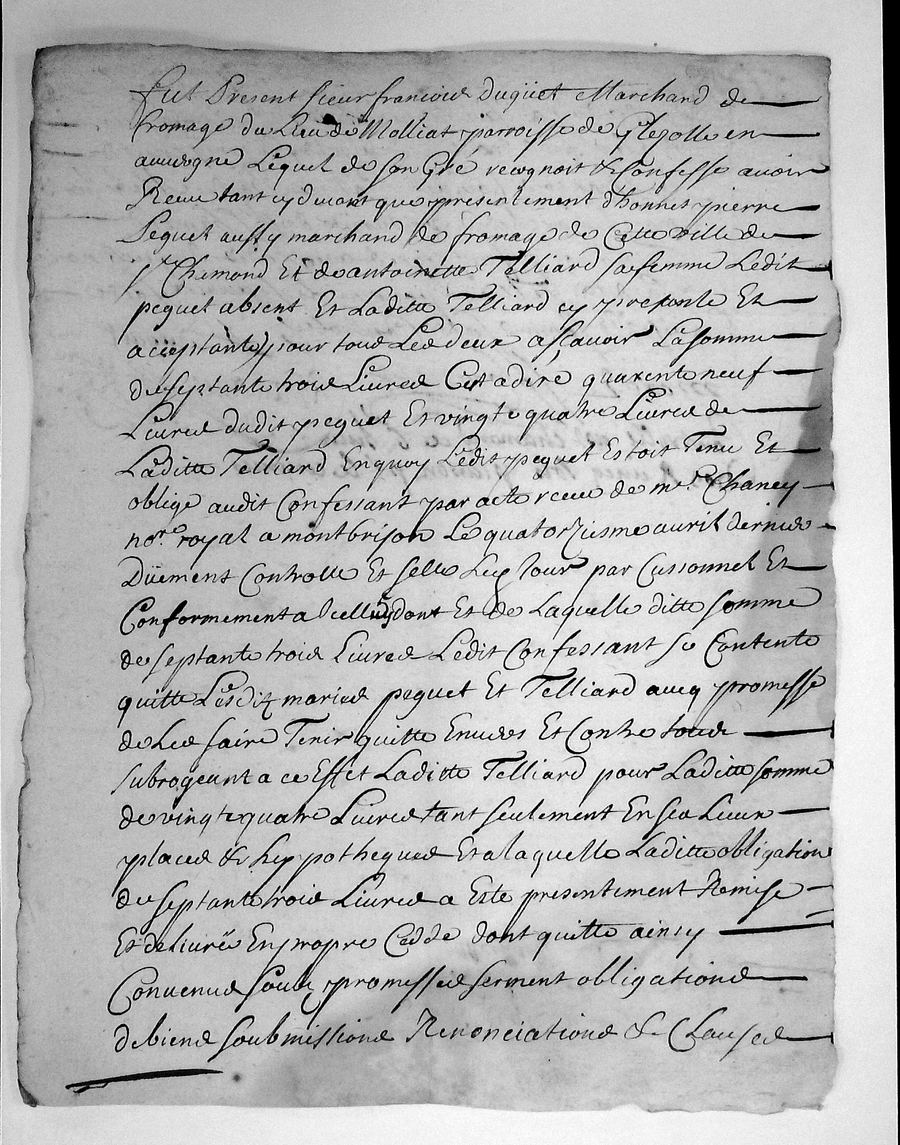 fut Present sieur francois duquet Marchand de
fromage du Lieu de Molliat parroisse de Glezolle en
auvergne Lequel de son Gré recognoit & Confesse avoir
Receu tant cy devant que presentement d'honnet pierre
Pequet aussy marchand de fromage de Cette ville de
st Chemond Et de antoinette Telliard sa femme Ledit
pequet absent Et Laditte Telliard cy presente Et
acceptante pour tous Les deux a sçavoir La somme
de septante trois Livres C'est a dire quarente neuf
Livres dudit pequet Et vingt quatre Livres de
Laditte Telliard En quoy Ledit pequet Estoit Tenu Et
obligé audit Confessant par acte receu de me Chaney
nore royal a montbrison Le quatorziesme avril dernier
Düement Controllé Et sellé Les Jour par Cussonnel Et
Conformement a Icelluy dont Et de Laquelle ditte somme
de septante trois Livres Ledit Confessant se Contente
quitte Lesditz maries pequet Et Telliard avecq promesse
de Les faire Tenir quitte Envers Et Contre tous
subrogeant a ce Effet Laditte Telliard pour Laditte somme
de vingt quatre Livres tant seulement En ses Lieux
places & hippotheques Et a laquelle Laditte obligation
de septante trois Livres a Esté presentement Remise
Et delivrée En propre Cedde dont quitte ainsy
Convenus soubz promesses serment obligations
de biens soubmissions Renonciations & Clauses